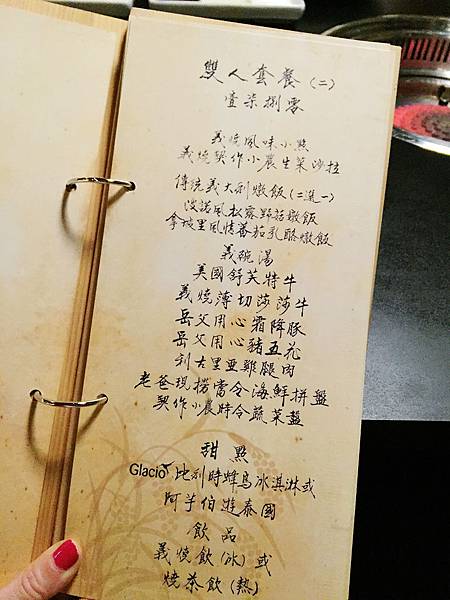 雙人套餐(二)
壹柒捌零
義燒風味小點
義燒契作小農生菜沙拉
傳統義大利燉飯(二選一)
波諾風松露野菇燉飯
拿坡里風情蕃茄乳酪燉飯
義碗湯
美國舒芙特牛
義燒薄切莎莎牛
岳父用心霜降豚
岳父用心豬五花
利古里亞雞腿肉
老爸現撈當令海鮮拼盤
契作小農時令蔬菜盤
甜點
Glacio 比利時蜂鳥冰淇淋或
阿芋伯遊泰國
飲品
義燒飲(冰)或
燒茶飲(熱)